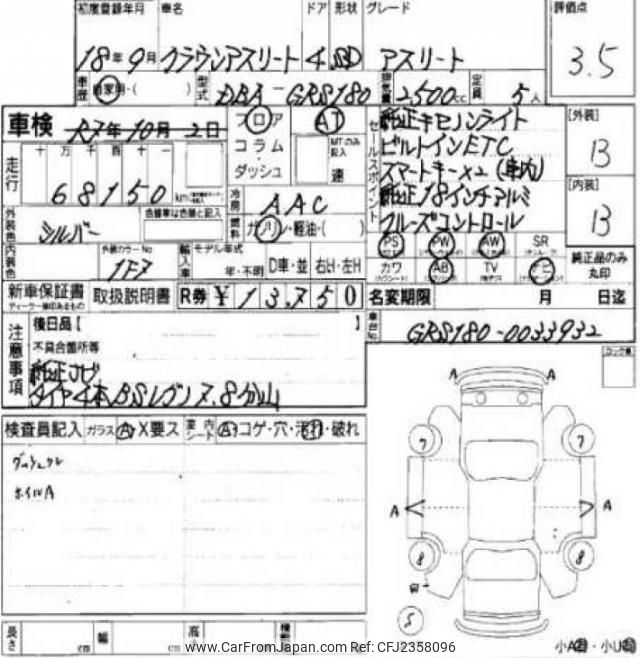 初度登録年月 車名 ドア 形状 グレード 評価点
18年9月 クラウンアスリート 4 SD アスリート 3.5
車歴 自家用・( ) 型式 DBA-GRS180 排気量 2500cc 定員 5人
車検 R7年10月2日 フロア AT
コラム・ダッシュ MTのみ記入 速
セールスポイント
純正キセノンライト
ビルトインETC
スマートキーx2(車内)
純正18インチアルミ
クルーズコントロール
[外装] B
[内装] B
走行 十 万 千 百 十 一
68150 km
冷房 AAC
外装色 シルバー 色替車は色替と記入
燃料 ガソリン・軽油・( )
PS PW AW SR
カワ AB TV ナビ
純正品のみ丸印
内装色 外装カラーNo 1F7 輸入車 モデル年式 年・不明 D車・並 右H・左H
新車保証書 取扱説明書 R券 ¥13,750
ディーラー捺印あるもの
名変期限 月 日迄
車台No. GRS180-0033932
注意事項 後日品[ ]
不具合箇所等
純正ナビ
タイヤ4本BSレグノ7.8分山
検査員記入 ガラス A・X要ス 室内シート A・コゲ・穴・汚れ・破れ
ホイルA
A A
7 7
A A
8 8
S
長さ cm 幅 cm 高
小A・小U
www.CarFromJapan.com Ref: CFJ2358096